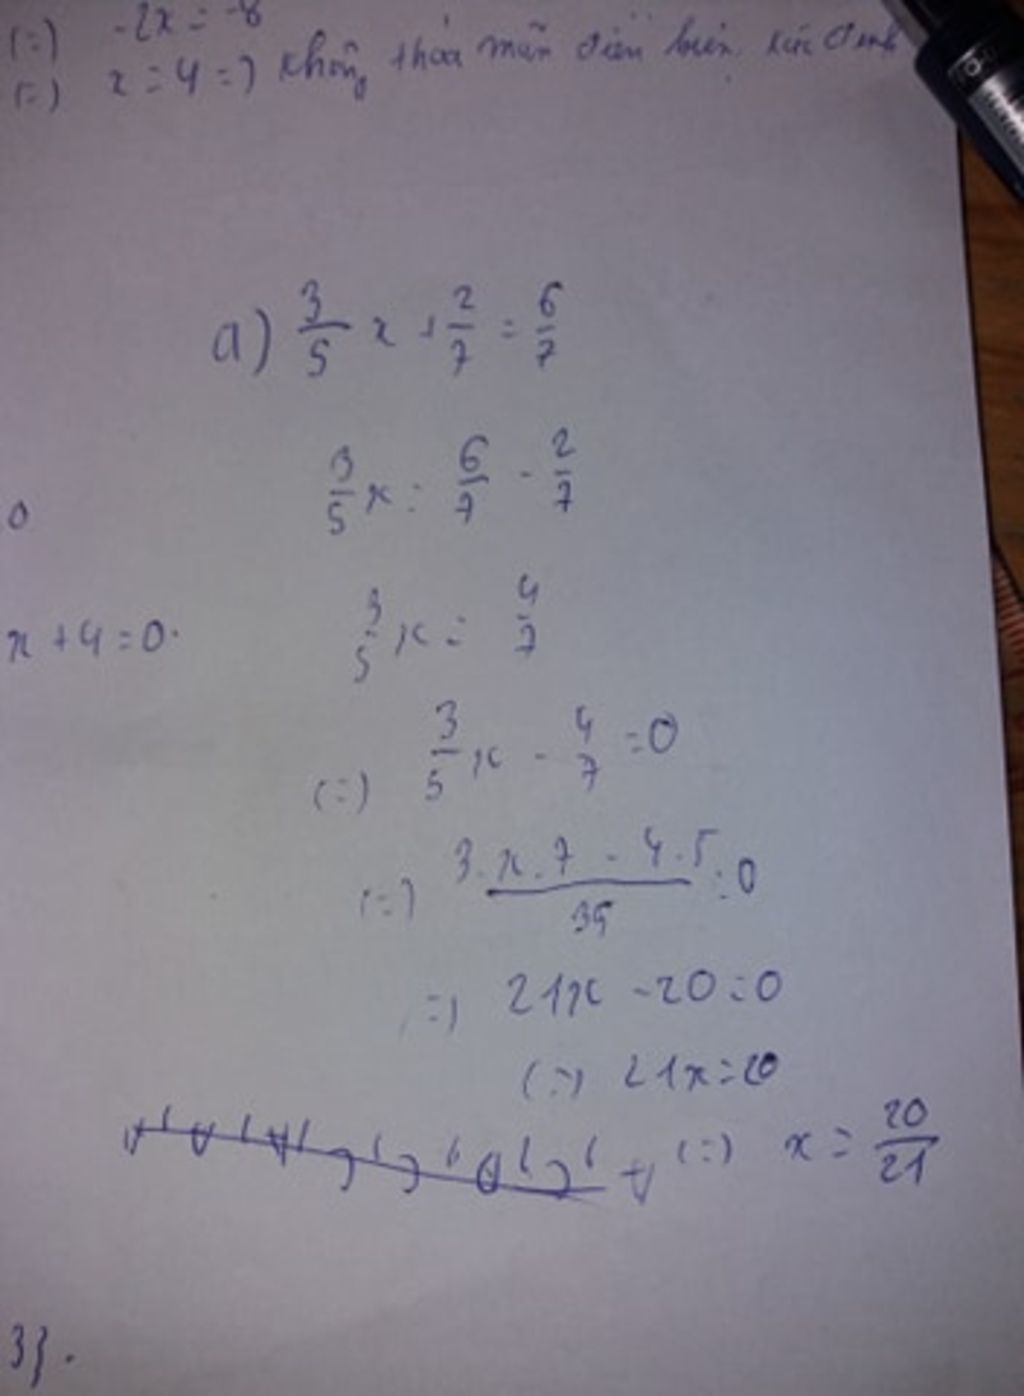 (=) -2x = -8
(=) x = 4 => không thỏa mãn điều kiện xác định
a) 3/5 x + 2/7 = 6/7
3/5 x = 6/7 - 2/7
0
3/5 x = 4/7
x + 4 = 0.
(=) 3/5 x - 4/7 = 0
(=) 3.x.7 - 4.5 / 35 = 0
=) 21x - 20 = 0
(=) 21x = 20
(=) x = 20/21
3}.